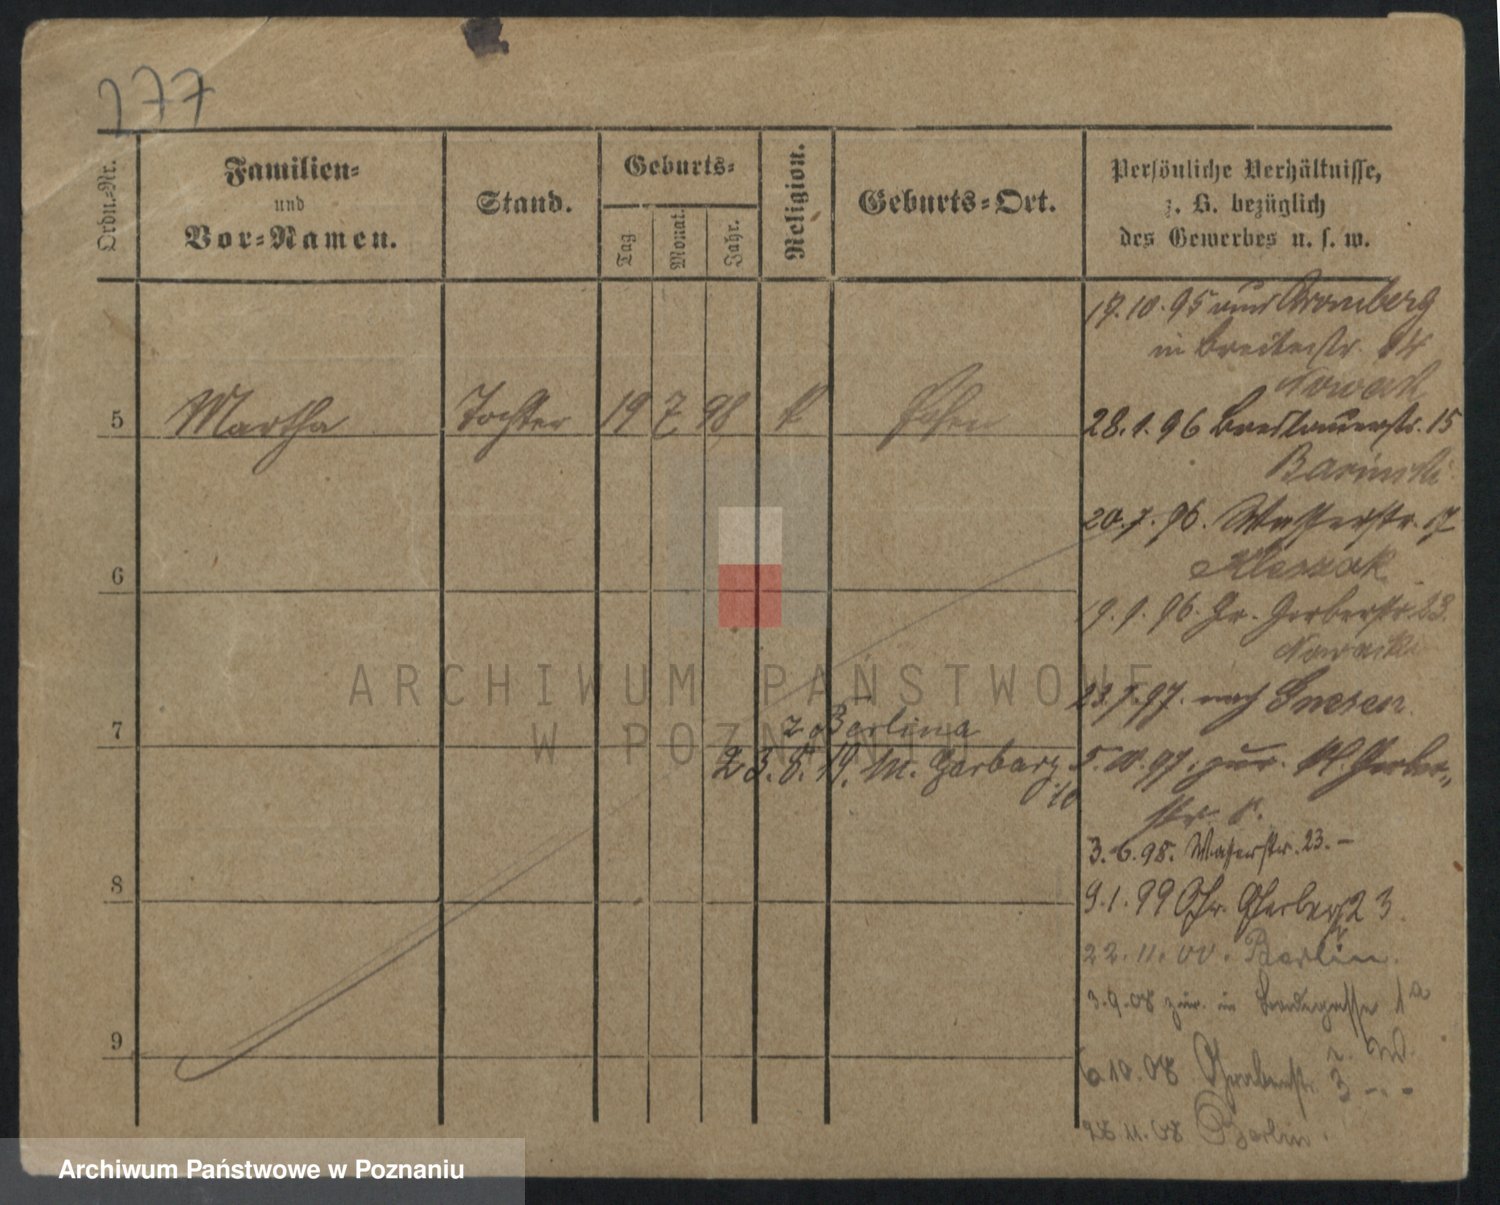 277
Ordn.-Nr.
Familien-
und
Vor-Namen.
Stand.
Geburts-
Tag
Monat.
Jahr.
Religion.
Geburts-Ort.
Persönliche Verhältnisse,
z. B. bezüglich
des Gewerbes u. s. w.
17.10.95 aus Bromberg
in Breitestr. 14
Nowack
5 Martha Tochter 19 7 98 k Posen
28.1.96 Breslauerstr. 15
Barinski
20.7.96. Wasserstr. 17
6
19.9.96. Gr. Gerberstr. 23.
Nowacki
23.7.97. nach Gnesen
7
z Berlina
23.8.19. M. Garbary 10
5.10.97. zur. Kl. Gerber-
str. 8.
3.6.98. Wasserstr. 23. –
8
9.1.99 Gr. Gerberstr 23.
22.11.00. Berlin.
3.9.08 zur. in 1a
z. W.
9
6.10.08 Grabenstr. 3 - . -
28.11.08 Berlin.
ARCHIWUM PAŃSTWOWE
W POZNANIU
Archiwum Państwowe w Poznaniu